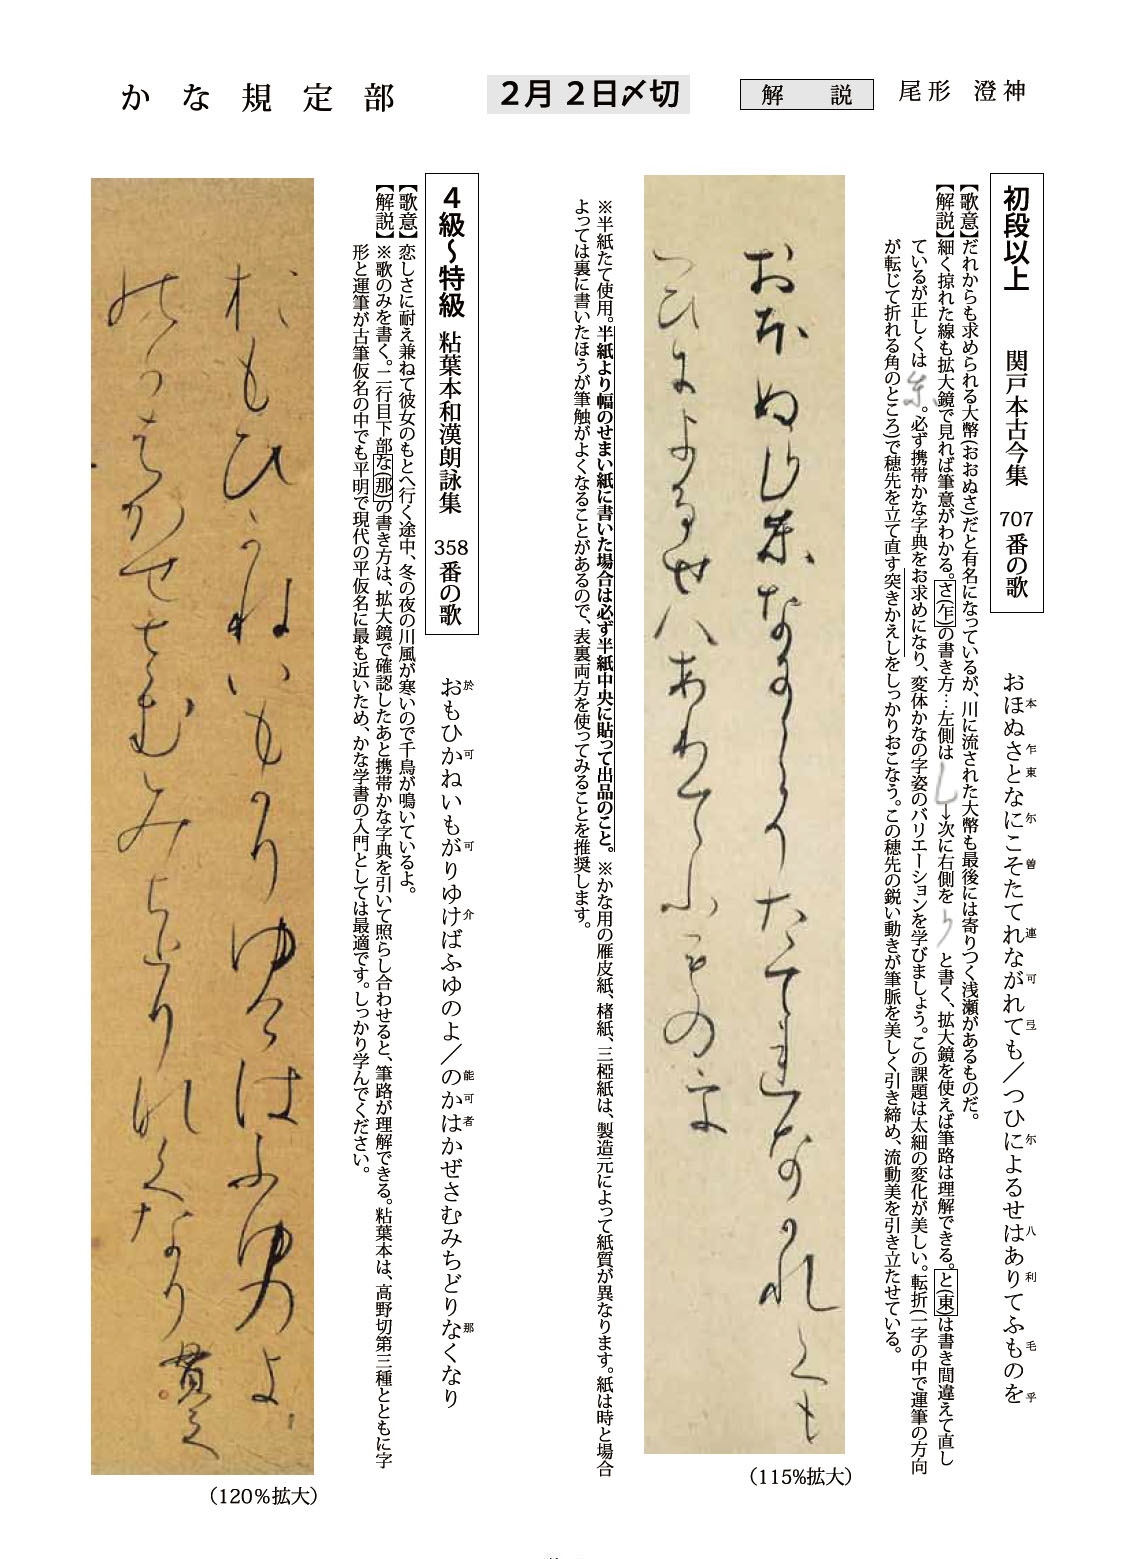 かな規定部
2月2日〆切
解　説
尾形 澄神
初段以上　関戸本古今集 707番の歌
おほぬさとなにこそたてれながれても／つひによるせはありてふものを
本 乍 東 尓 曽 連 可 弖 尓 八 利 毛 乎
【歌意】だれからも求められる大幣(おおぬさ)だと有名になっているが、川に流された大幣も最後には寄りつく浅瀬があるものだ。
【解説】細く掠れた線も拡大鏡で見れば筆意がわかる。さ(乍)の書き方…左側は　→次に右側を　と書く、拡大鏡を使えば筆路は理解できる。と(東)は書き間違えて直し
ているが正しくは　。必ず携帯かな字典をお求めになり、変体かなの字姿のバリエーションを学びましょう。この課題は太細の変化が美しい。転折(一字の中で運筆の方向
が転じて折れる角のところ)で穂先を立て直す突きかえしをしっかりおこなう。この穂先の鋭い動きが筆脈を美しく引き締め、流動美を引き立たせている。
(115%拡大)
※半紙たて使用。半紙より幅のせまい紙に書いた場合は必ず半紙中央に貼って出品のこと。※かな用の雁皮紙、楮紙、三椏紙は、製造元によって紙質が異なります。紙は時と場合
よっては裏に書いたほうが筆触がよくなることがあるので、表裏両方を使ってみることを推奨します。
4級～特級　粘葉本和漢朗詠集 358番の歌
おもひかねいもがりゆけばふゆのよ／のかはかぜさむみちどりなくなり
於 可 可 介 能 可 者 那
【歌意】恋しさに耐え兼ねて彼女のもとへ行く途中、冬の夜の川風が寒いので千鳥が鳴いているよ。
【解説】※歌のみを書く。二行目下部な(那)の書き方は、拡大鏡で確認したあと携帯かな字典を引いて照らし合わせると、筆路が理解できる。粘葉本は、高野切第三種とともに字
形と運筆が古筆仮名の中でも平明で現代の平仮名に最も近いため、かな学書の入門としては最適です。しっかり学んでください。
(120%拡大)